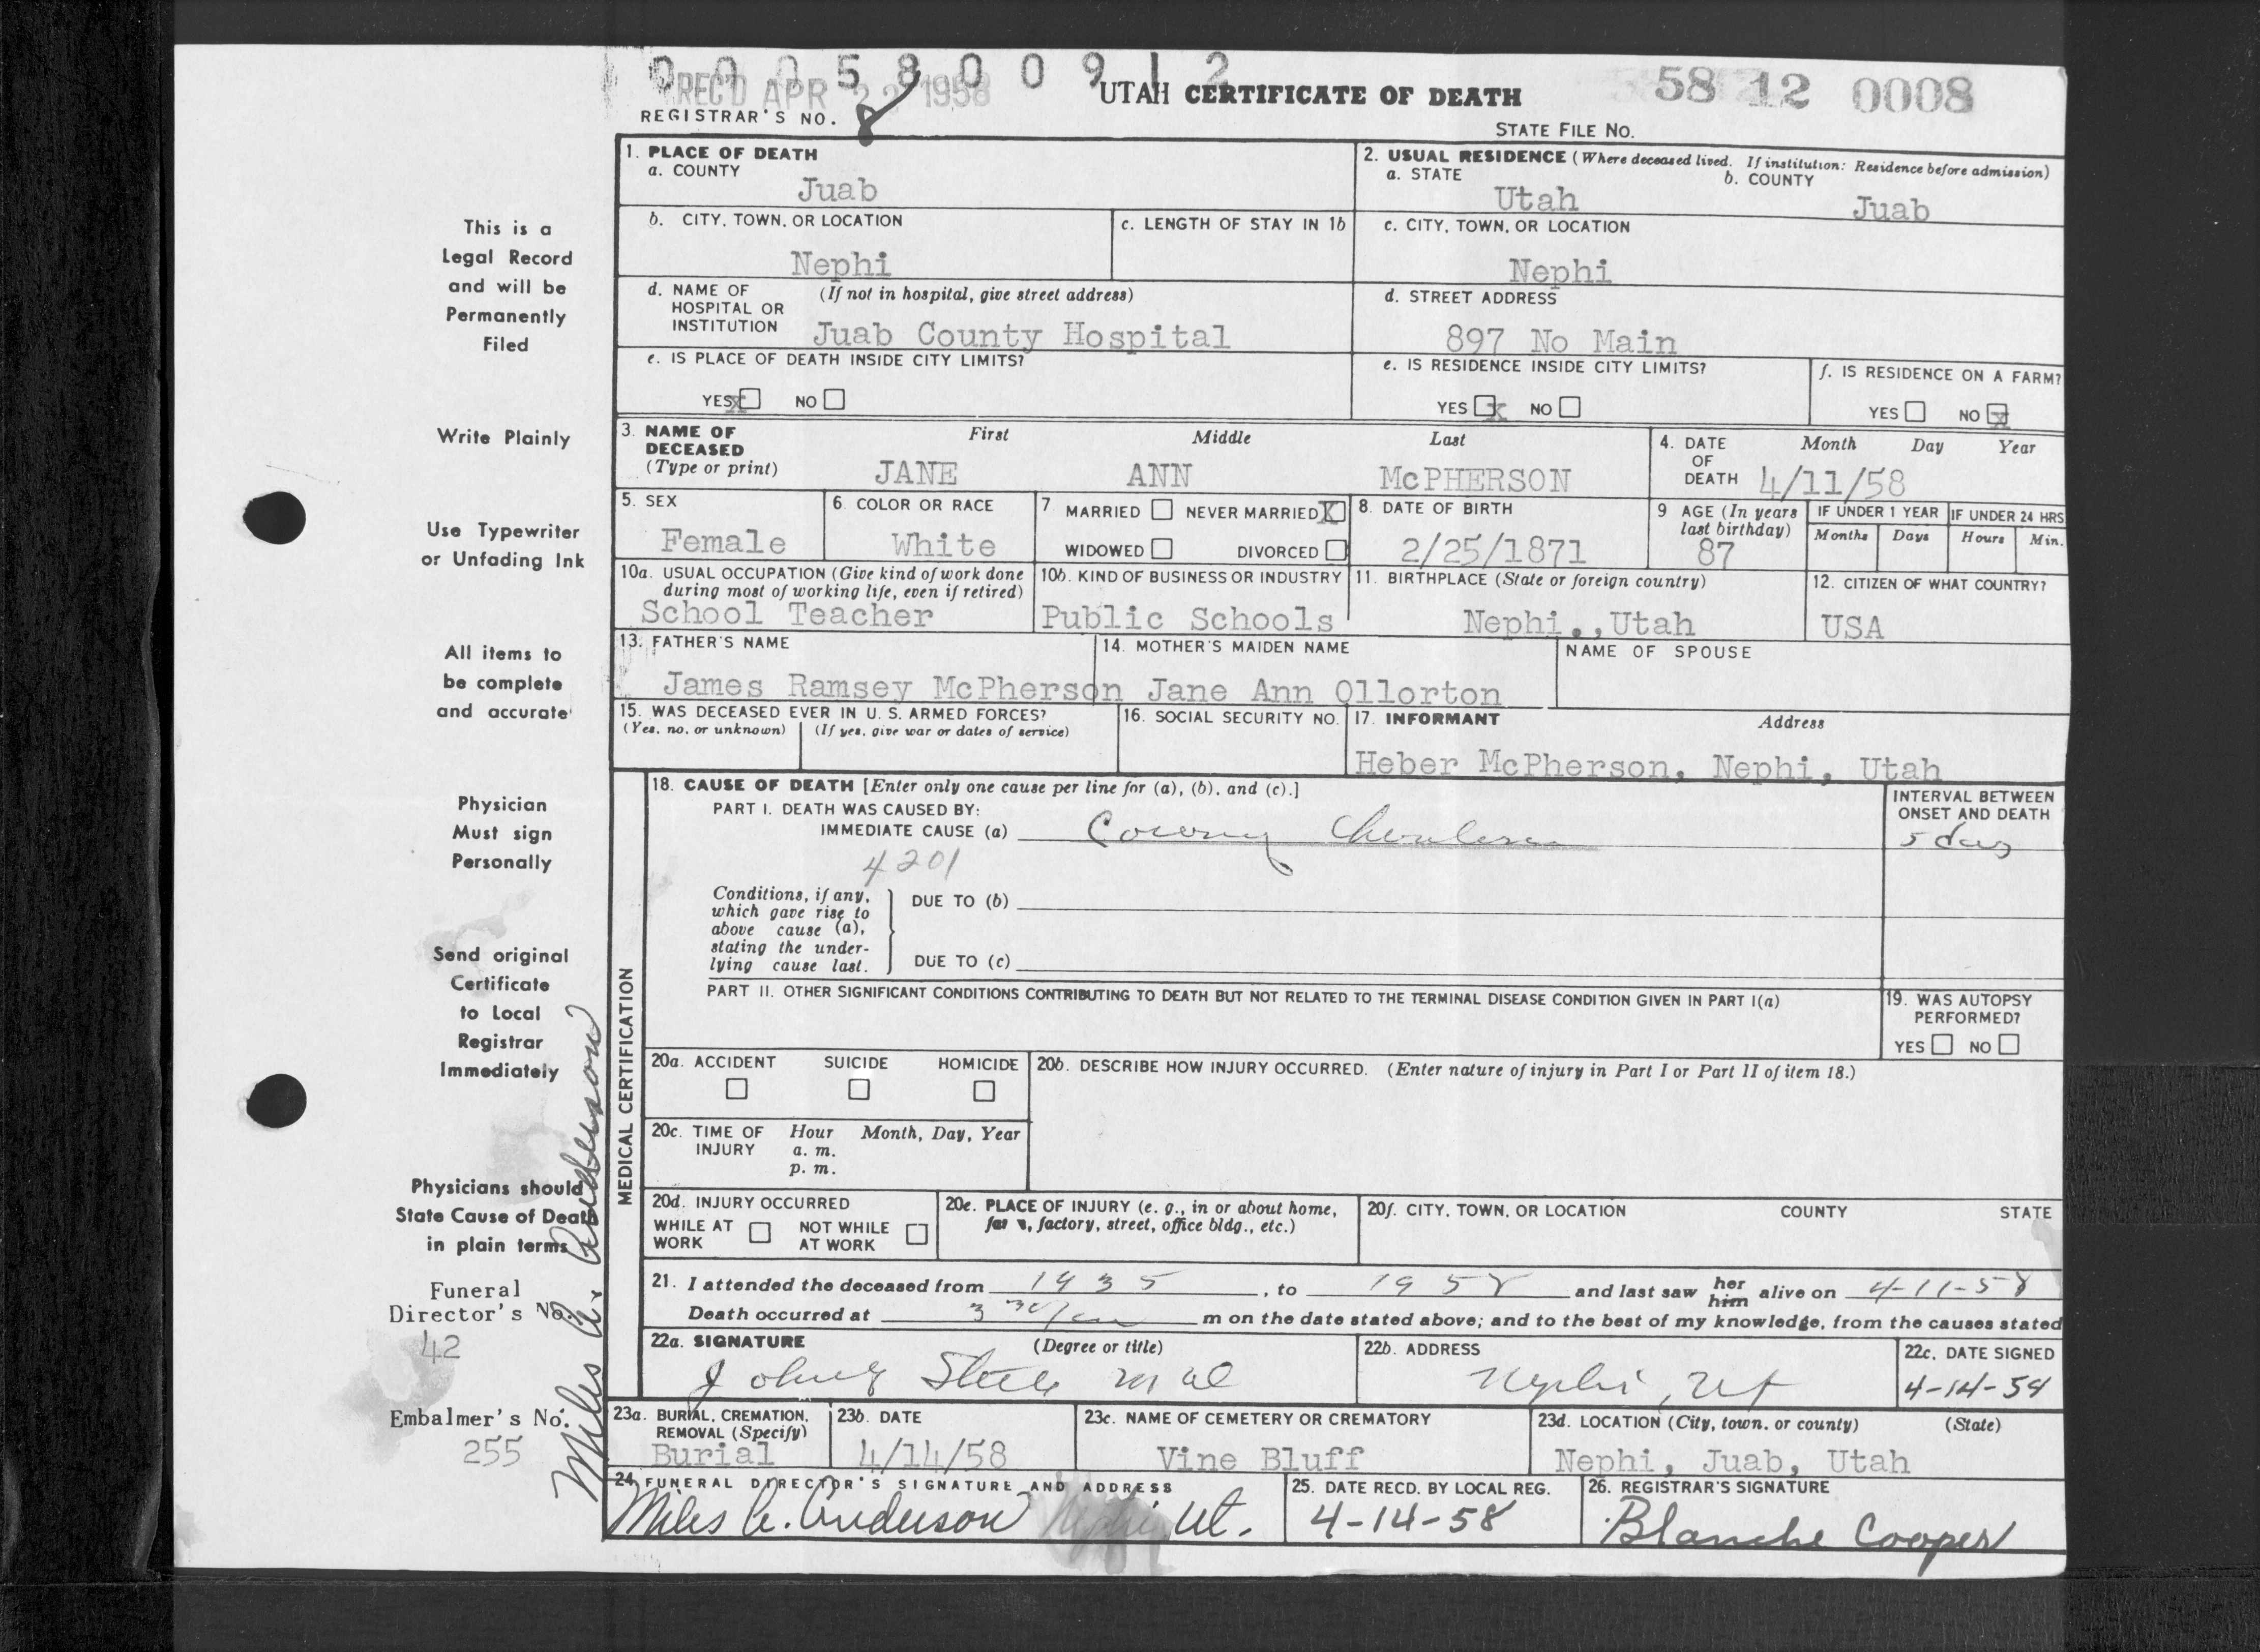 0 0 0 5 8 0 0 9 1 2
REC'D APR 22 1958
UTAH CERTIFICATE OF DEATH
58 12 0008
REGISTRAR'S NO. 8
STATE FILE NO.
1. PLACE OF DEATH
a. COUNTY
Juab
2. USUAL RESIDENCE (Where deceased lived. If institution: Residence before admission)
a. STATE
Utah
b. COUNTY
Juab
b. CITY, TOWN, OR LOCATION
Nephi
c. LENGTH OF STAY IN 1b
c. CITY, TOWN, OR LOCATION
Nephi
d. NAME OF HOSPITAL OR INSTITUTION
(If not in hospital, give street address)
Juab County Hospital
d. STREET ADDRESS
897 No Main
e. IS PLACE OF DEATH INSIDE CITY LIMITS?
YES X NO
e. IS RESIDENCE INSIDE CITY LIMITS?
YES X NO
f. IS RESIDENCE ON A FARM?
YES NO X
3. NAME OF DECEASED (Type or print)
First Middle Last
JANE ANN McPHERSON
4. DATE OF DEATH
Month Day Year
4/11/58
5. SEX
Female
6. COLOR OR RACE
White
7 MARRIED NEVER MARRIED X
WIDOWED DIVORCED
8. DATE OF BIRTH
2/25/1871
9 AGE (In years last birthday)
87
IF UNDER 1 YEAR
Months Days
IF UNDER 24 HRS
Hours Min.
10a. USUAL OCCUPATION (Give kind of work done during most of working life, even if retired)
School Teacher
10b. KIND OF BUSINESS OR INDUSTRY
Public Schools
11. BIRTHPLACE (State or foreign country)
Nephi.,Utah
12. CITIZEN OF WHAT COUNTRY?
USA
13. FATHER'S NAME
James Ramsey McPherson
14. MOTHER'S MAIDEN NAME
Jane Ann Ollorton
NAME OF SPOUSE
15. WAS DECEASED EVER IN U. S. ARMED FORCES?
(Yes, no, or unknown) (If yes, give war or dates of service)
16. SOCIAL SECURITY NO.
17. INFORMANT Address
Heber McPherson, Nephi, Utah
MEDICAL CERTIFICATION
18. CAUSE OF DEATH [Enter only one cause per line for (a), (b), and (c).]
PART I. DEATH WAS CAUSED BY:
IMMEDIATE CAUSE (a)
4201
INTERVAL BETWEEN ONSET AND DEATH
5 days
Conditions, if any, which gave rise to above cause (a), stating the underlying cause last.
DUE TO (b)
DUE TO (c)
PART II. OTHER SIGNIFICANT CONDITIONS CONTRIBUTING TO DEATH BUT NOT RELATED TO THE TERMINAL DISEASE CONDITION GIVEN IN PART I(a)
19. WAS AUTOPSY PERFORMED?
YES NO
20a. ACCIDENT SUICIDE HOMICIDE
20b. DESCRIBE HOW INJURY OCCURRED. (Enter nature of injury in Part I or Part II of item 18.)
20c. TIME OF INJURY
Hour Month, Day, Year
a. m.
p. m.
20d. INJURY OCCURRED
WHILE AT WORK NOT WHILE AT WORK
20e. PLACE OF INJURY (e. g., in or about home, farm, factory, street, office bldg., etc.)
20f. CITY, TOWN, OR LOCATION COUNTY STATE
21. I attended the deceased from 1935, to 1958 and last saw her him alive on 4-11-58
Death occurred at 3 30/ m on the date stated above; and to the best of my knowledge, from the causes stated
22a. SIGNATURE (Degree or title)
Steele M D
22b. ADDRESS
Nephi, Ut
22c. DATE SIGNED
4-14-58
23a. BURIAL, CREMATION, REMOVAL (Specify)
Burial
23b. DATE
4/14/58
23c. NAME OF CEMETERY OR CREMATORY
Vine Bluff
23d. LOCATION (City, town, or county) (State)
Nephi, Juab, Utah
24. FUNERAL DIRECTOR'S SIGNATURE AND ADDRESS
Miles A. Anderson Nephi, Ut.
25. DATE RECD. BY LOCAL REG.
4-14-58
26. REGISTRAR'S SIGNATURE
Blanche Cooper
This is a
Legal Record
and will be
Permanently
Filed
Write Plainly
Use Typewriter
or Unfading Ink
All items to
be complete
and accurate
Physician
Must sign
Personally
Send original
Certificate
to Local
Registrar
Immediately
Physicians should
State Cause of Death
in plain terms
Funeral
Director's No.
42
Embalmer's No.
255
Miles A. Anderson